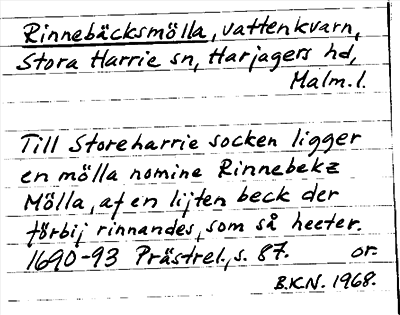 Rinnebäcksmölla, vattenkvarn,
Stora Harrie sn, Harjagers hd,
Malm. l.
Till Storeharrie socken ligger
en mölla nomine Rinnebekz
Mölla, af en lijten beck der
förbij rinnandes, som så heeter.
1690-93 Prästrel., s. 87. or.
B.K.N. 1968.